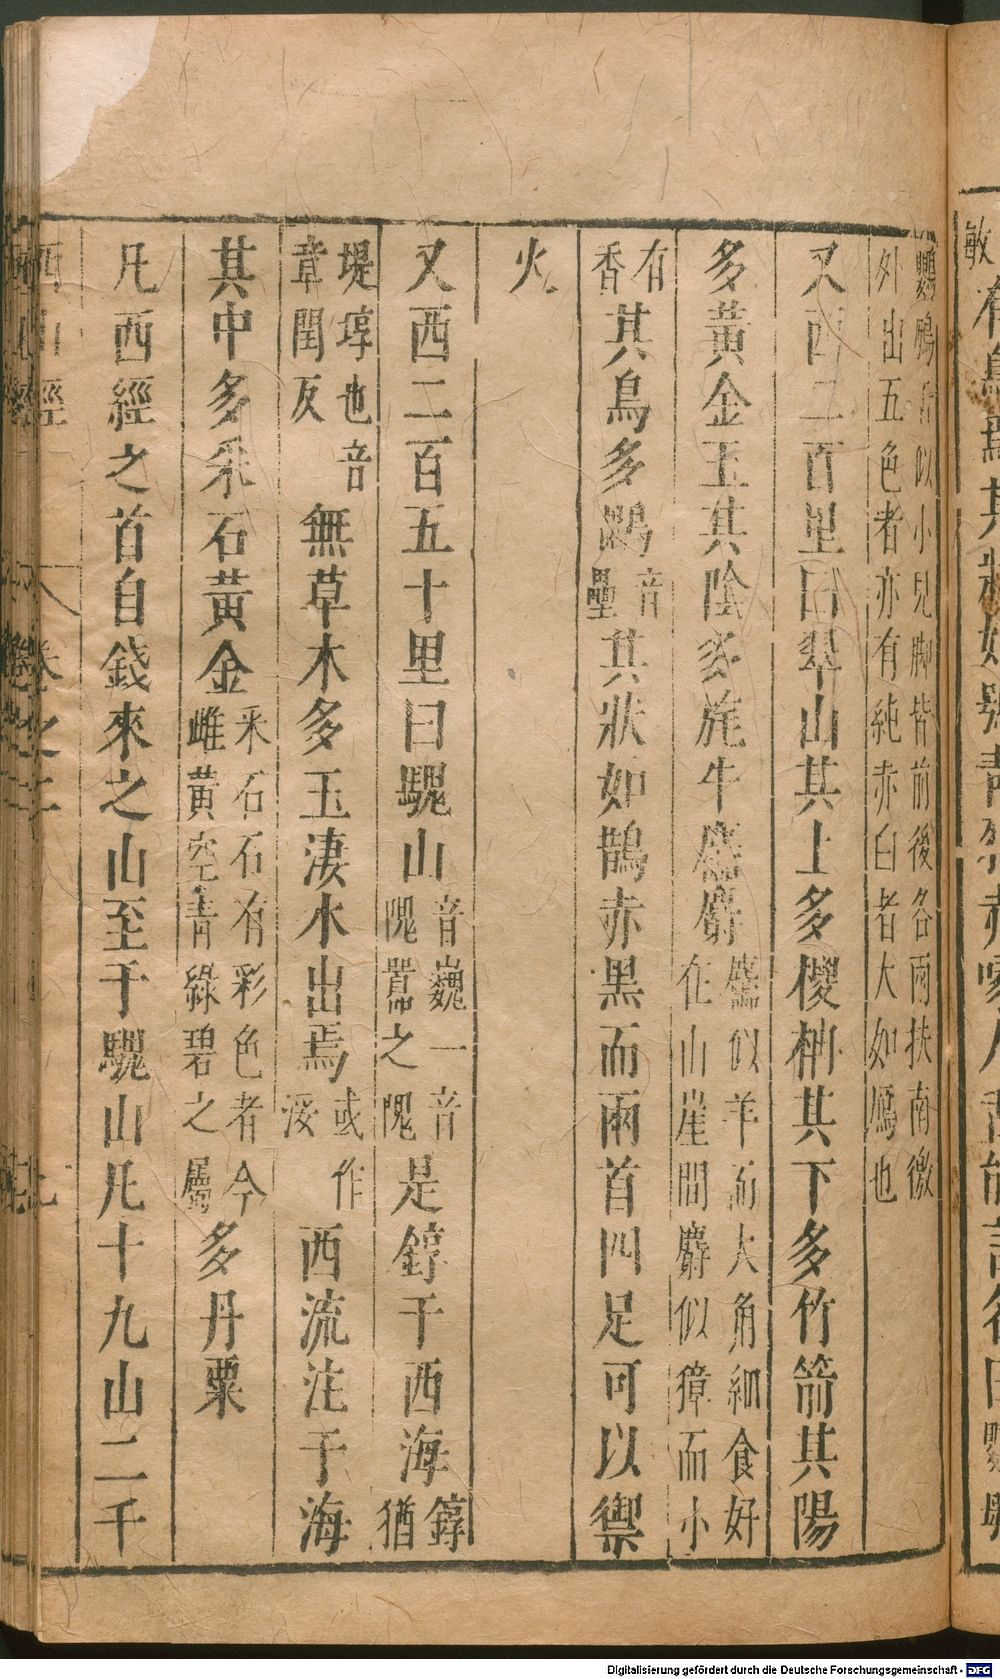 敏
有鳥焉其狀如鴞青
鸚鴟舌似小兒脚皆前後各兩扶南徼
外出五色者亦有純赤白者大如鴈也
又西二百里曰翠山其上多椶枏其下多竹箭其陽
多黃金玉其陰多旄牛麢麝麢似羊而大角細食好
在山崖間麝似獐而小
有
香其鳥多鸓音
壘其狀如鵲赤黑而兩首四足可以禦
火
又西二百五十里曰騩山音巍一音
隗嚚之隗是錞于西海錞
猶
堤埻也音
章閏反無草木多玉淒水出焉或作
浽西流注于海
其中多采石黃金采石石有彩色者今
雌黃空青綠碧之屬多丹粟
凡西經之首自錢來之山至于騩山凡十九山二千
西山經 卷之二 九
Digitalisierung gefördert durch die Deutsche Forschungsgemeinschaft - DFG